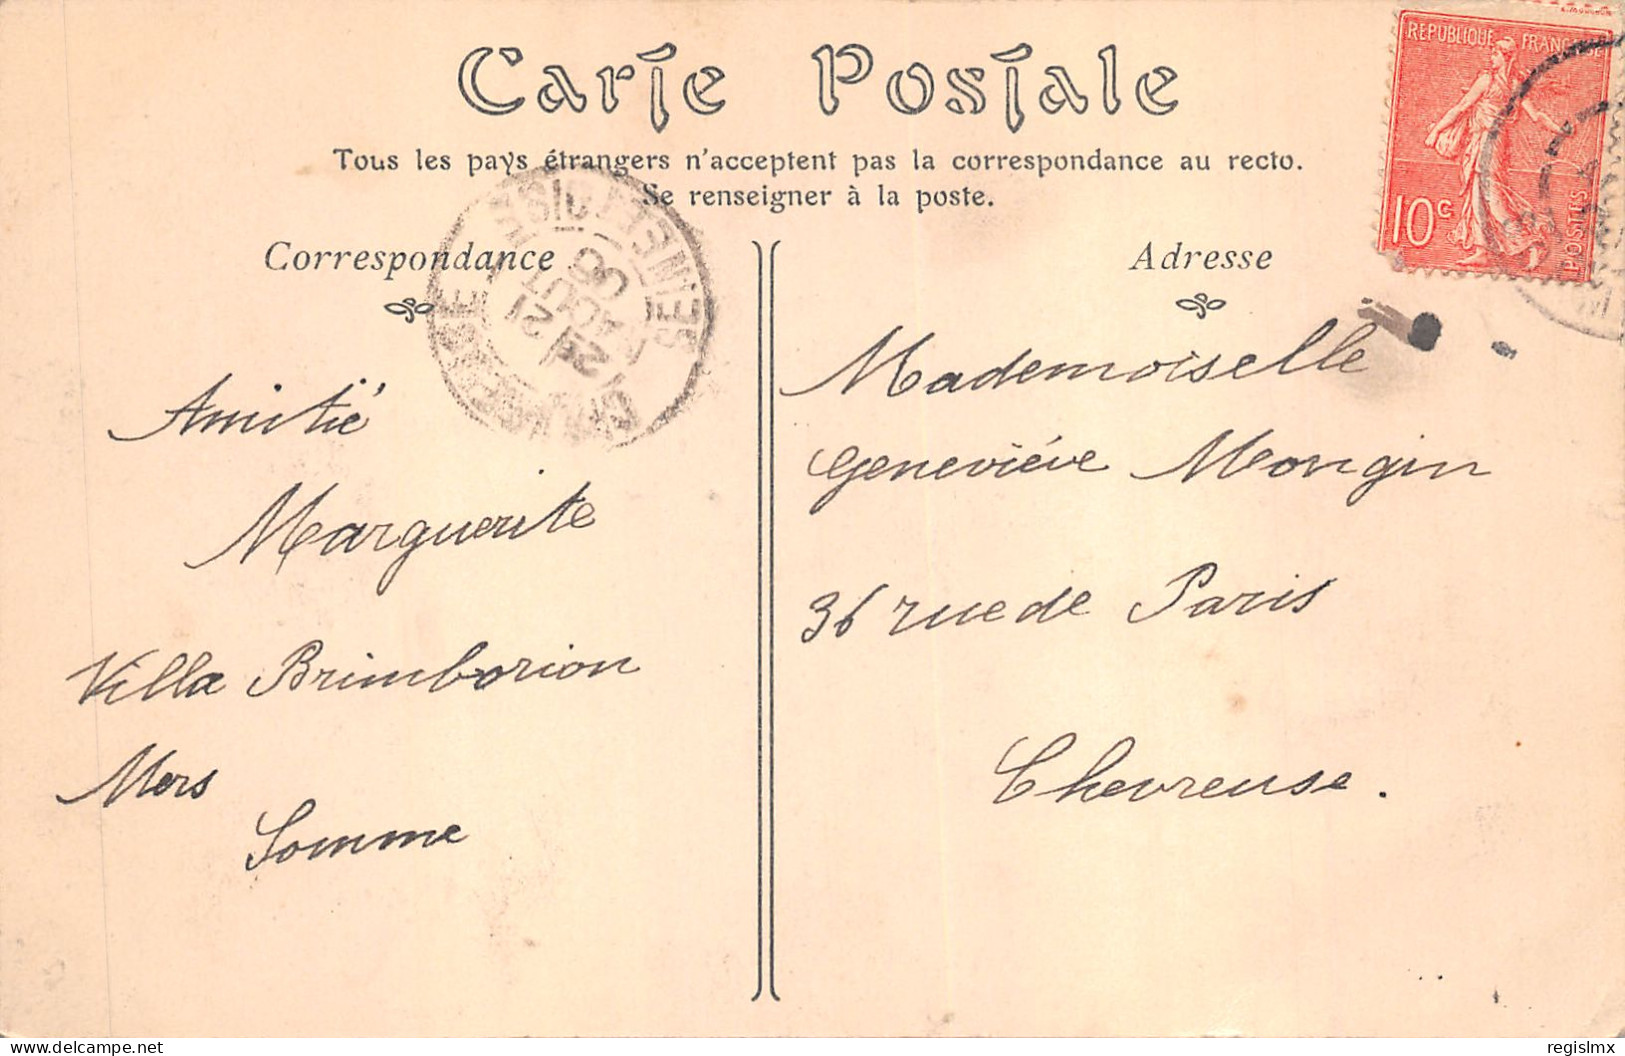 Carte Postale
Tous les pays étrangers n'acceptent pas la correspondance au recto.
Se renseigner à la poste.
Correspondance
Amitié
Marguerite
Villa Brimborion
Mers
Somme
CHEVREUSE
SEINE ET OISE
21
24
AOUT
06
Adresse
Mademoiselle
Geneviéve Mongin
36 rue de Paris
Chevreuse.
REPUBLIQUE FRANÇAISE
10c
POSTES
delcampe.net
regislmx